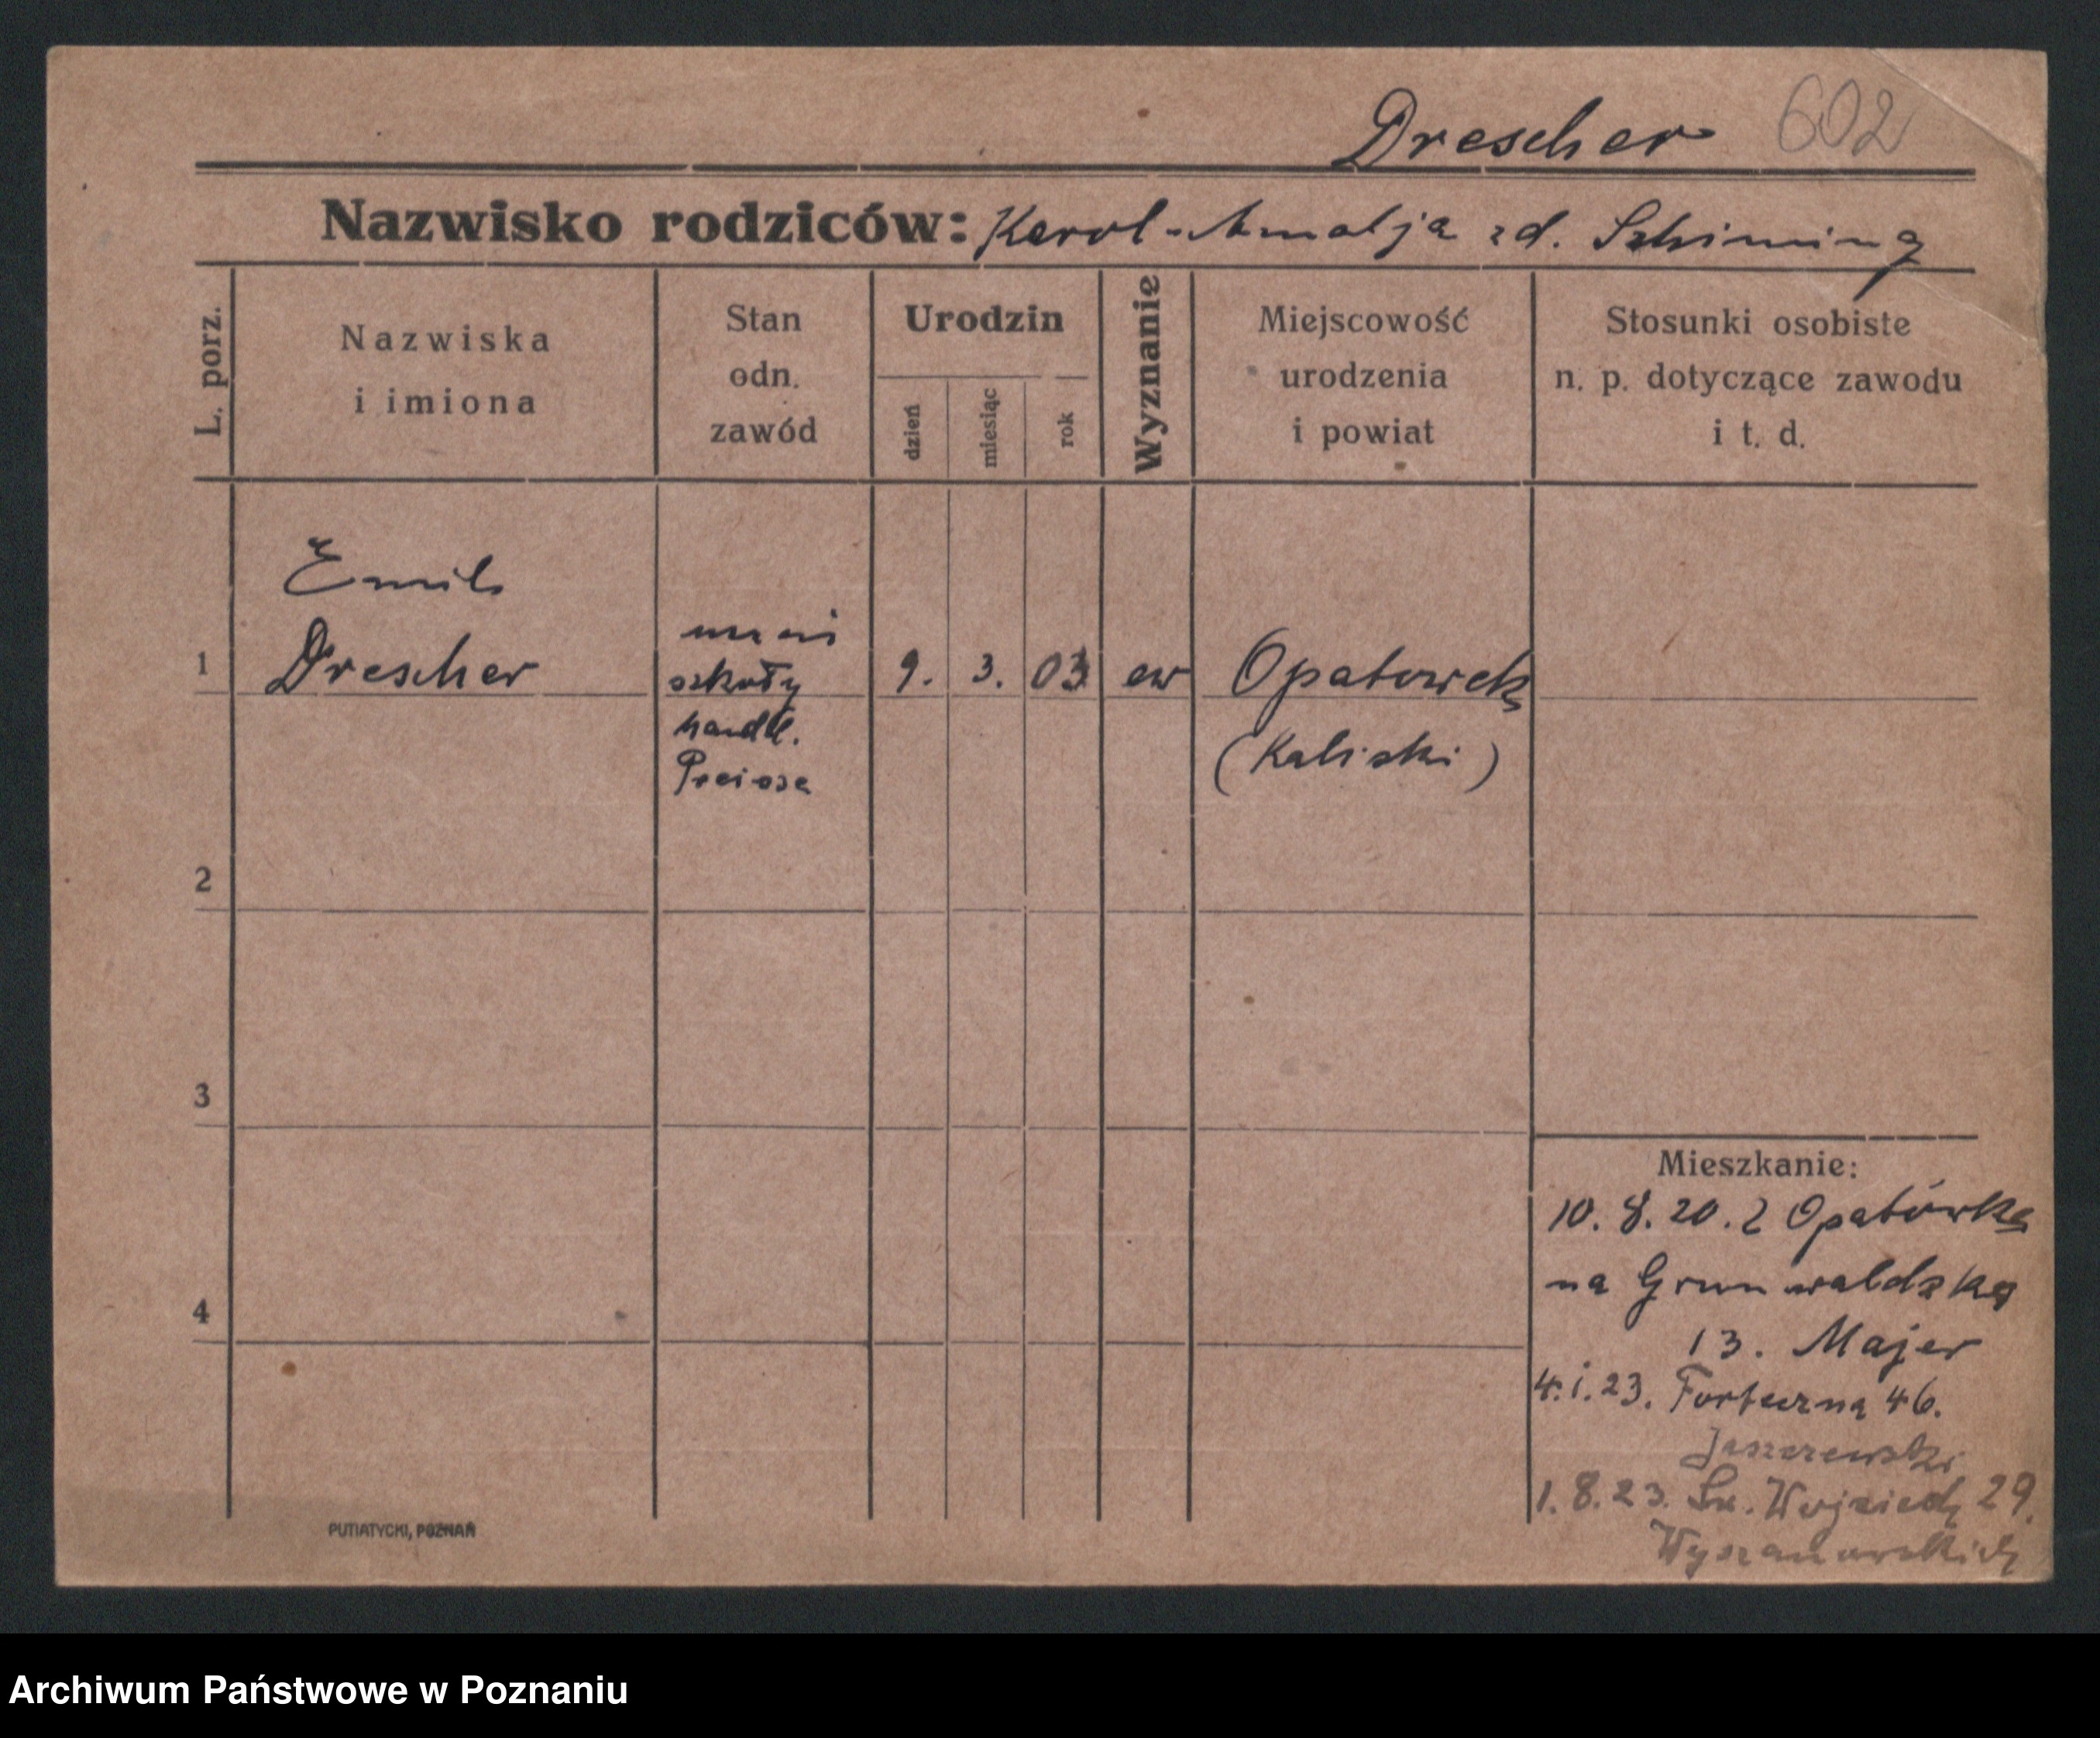 Drescher 602
Nazwisko rodziców: Karol - Amalja zd. Szhiming
L. porz.
Nazwiska
i imiona
Stan
odn.
zawód
Urodzin
dzień
miesiąc
rok
Wyznanie
Miejscowość
urodzenia
i powiat
Stosunki osobiste
n. p. dotyczące zawodu
i t. d.
Emil
1 Drescher
szkoły
handl.
9. 3. 03 ew Opatowek
(Kaliski)
2
3
4
Mieszkanie:
10. 8. 20. z Opatówka
na Grunwaldską
13. Majer
4. i. 23. Forteczna 46.
Jaszczewski
1. 8. 23. Św. Wojciech 29.
PUTIATYCKI, POZNAŃ
Archiwum Państwowe w Poznaniu